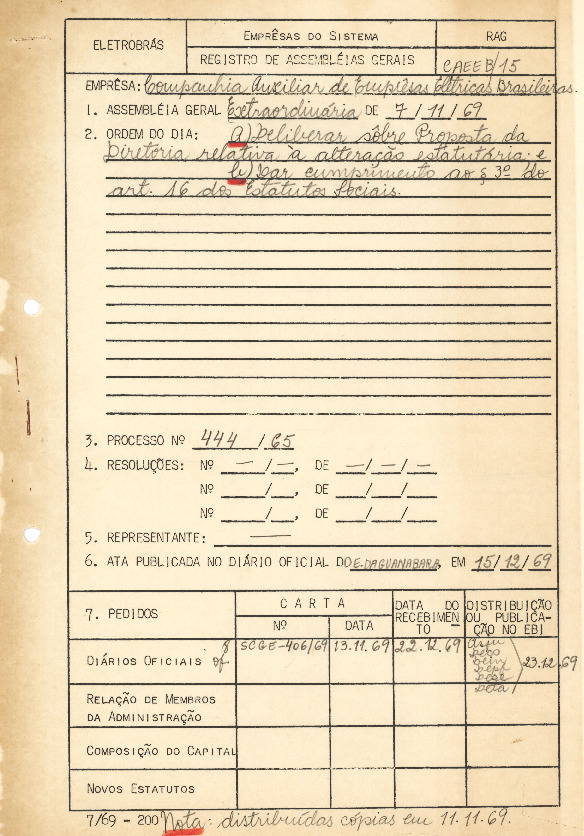 ELETROBRÁS
EMPRÊSAS DO SISTEMA
RAG
REGISTRO DE ASSEMBLÉIAS GERAIS
CAEEB/15
EMPRÊSA: Companhia Auxiliar de Emprêsas Elétricas Brasileiras.
1. ASSEMBLÉIA GERAL Extraordinária DE 7/11/69
2. ORDEM DO DIA: a) Deliberar sôbre Proposta da
Diretoria relativa à alteração estatutária; e
b) Dar cumprimento ao § 3º do
art. 16 dos Estatutos Sociais.
3. PROCESSO Nº 444/65
4. RESOLUÇÕES: Nº —/—, DE —/—/—
Nº /, DE / /
Nº /, DE / /
5. REPRESENTANTE: —
6. ATA PUBLICADA NO DIÁRIO OFICIAL DO E. DA GUANABARA, EM 15/12/69
7. PEDIDOS
CARTA
Nº
DATA
DATA DO
RECEBIMEN
TO
DISTRIBUIÇÃO
OU PUBLICA-
ÇÃO NO EBI
DIÁRIOS OFICIAIS 8 of
SCGE-406/69
13.11.69
22.12.69
23.12.69
RELAÇÃO DE MEMBROS
DA ADMINISTRAÇÃO
COMPOSIÇÃO DO CAPITAL
NOVOS ESTATUTOS
7/69 - 200 Nota: distribuídas cópias em 11.11.69.